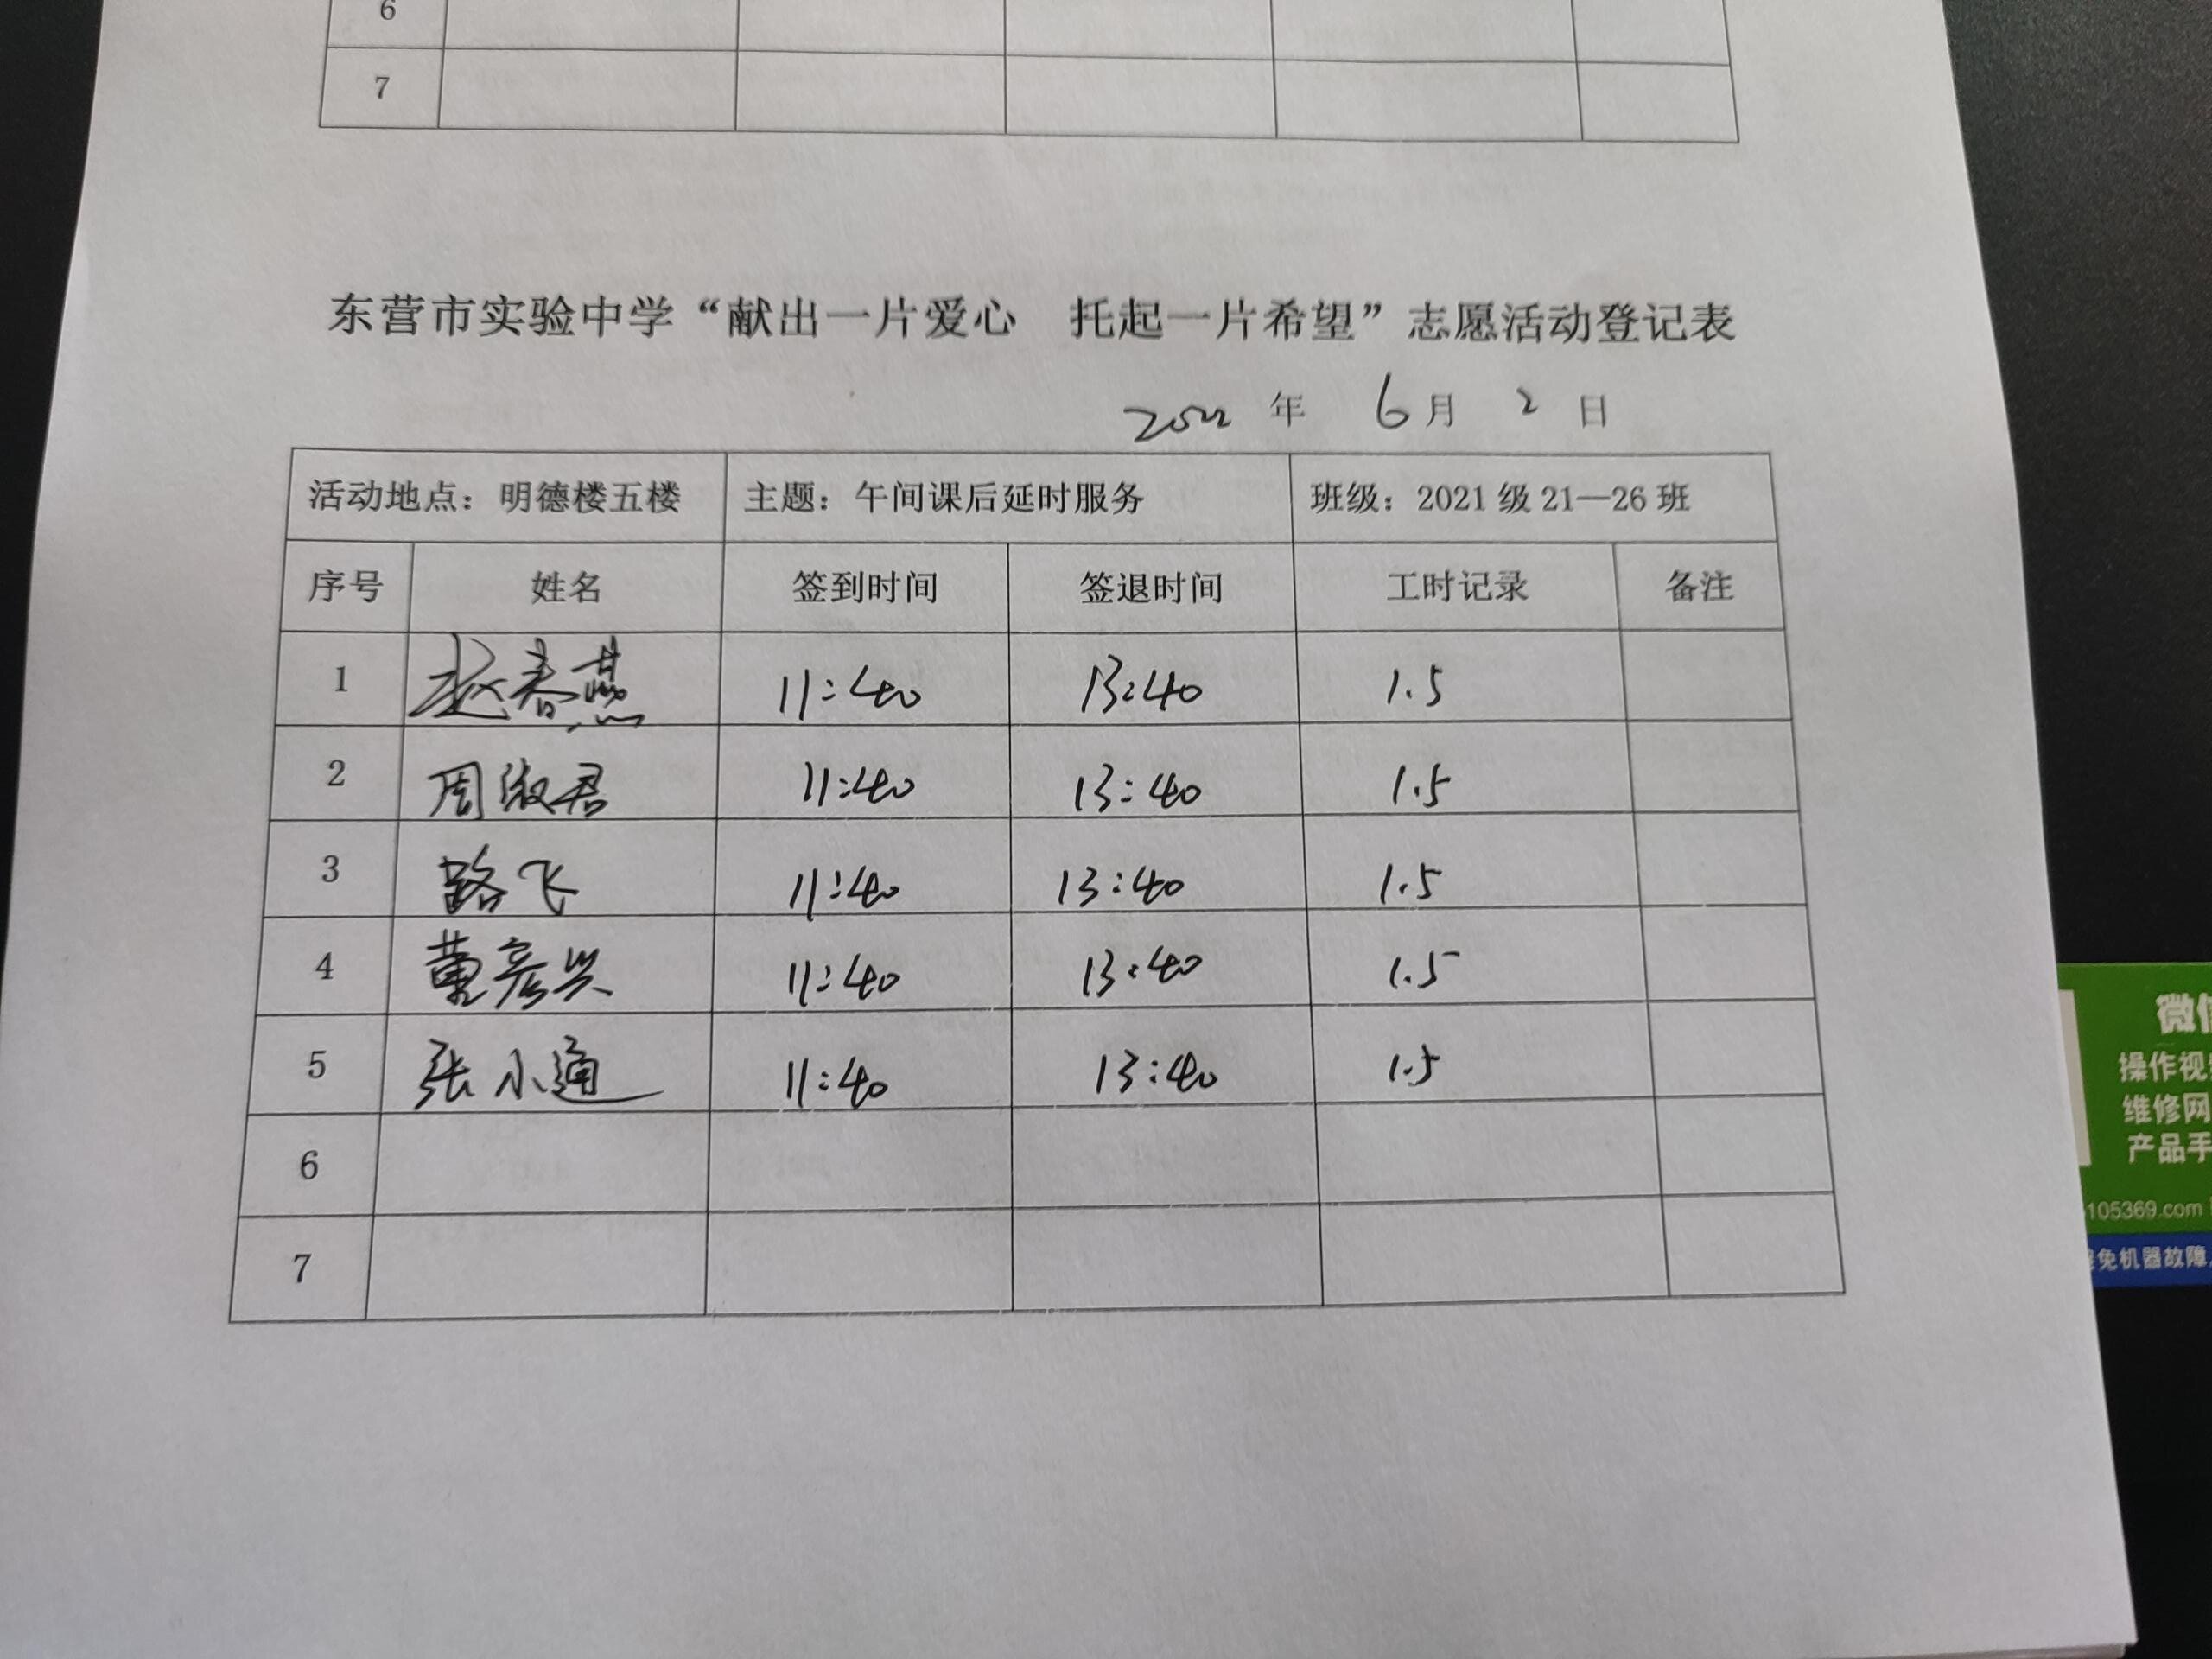 6
7
东营市实验中学“献出一片爱心 托起一片希望”志愿活动登记表
2022 年 6 月 2 日
活动地点：明德楼五楼 主题：午间课后延时服务 班级：2021 级 21—26 班
序号 姓名 签到时间 签退时间 工时记录 备注
1 赵春燕 11:40 13:40 1.5
2 周淑君 11:40 13:40 1.5
3 路飞 11:40 13:40 1.5
4 董彦兴 11:40 13:40 1.5
5 张小通 11:40 13:40 1.5
6
7
微信
操作视
维修网
产品手
105369.com
免机器故障